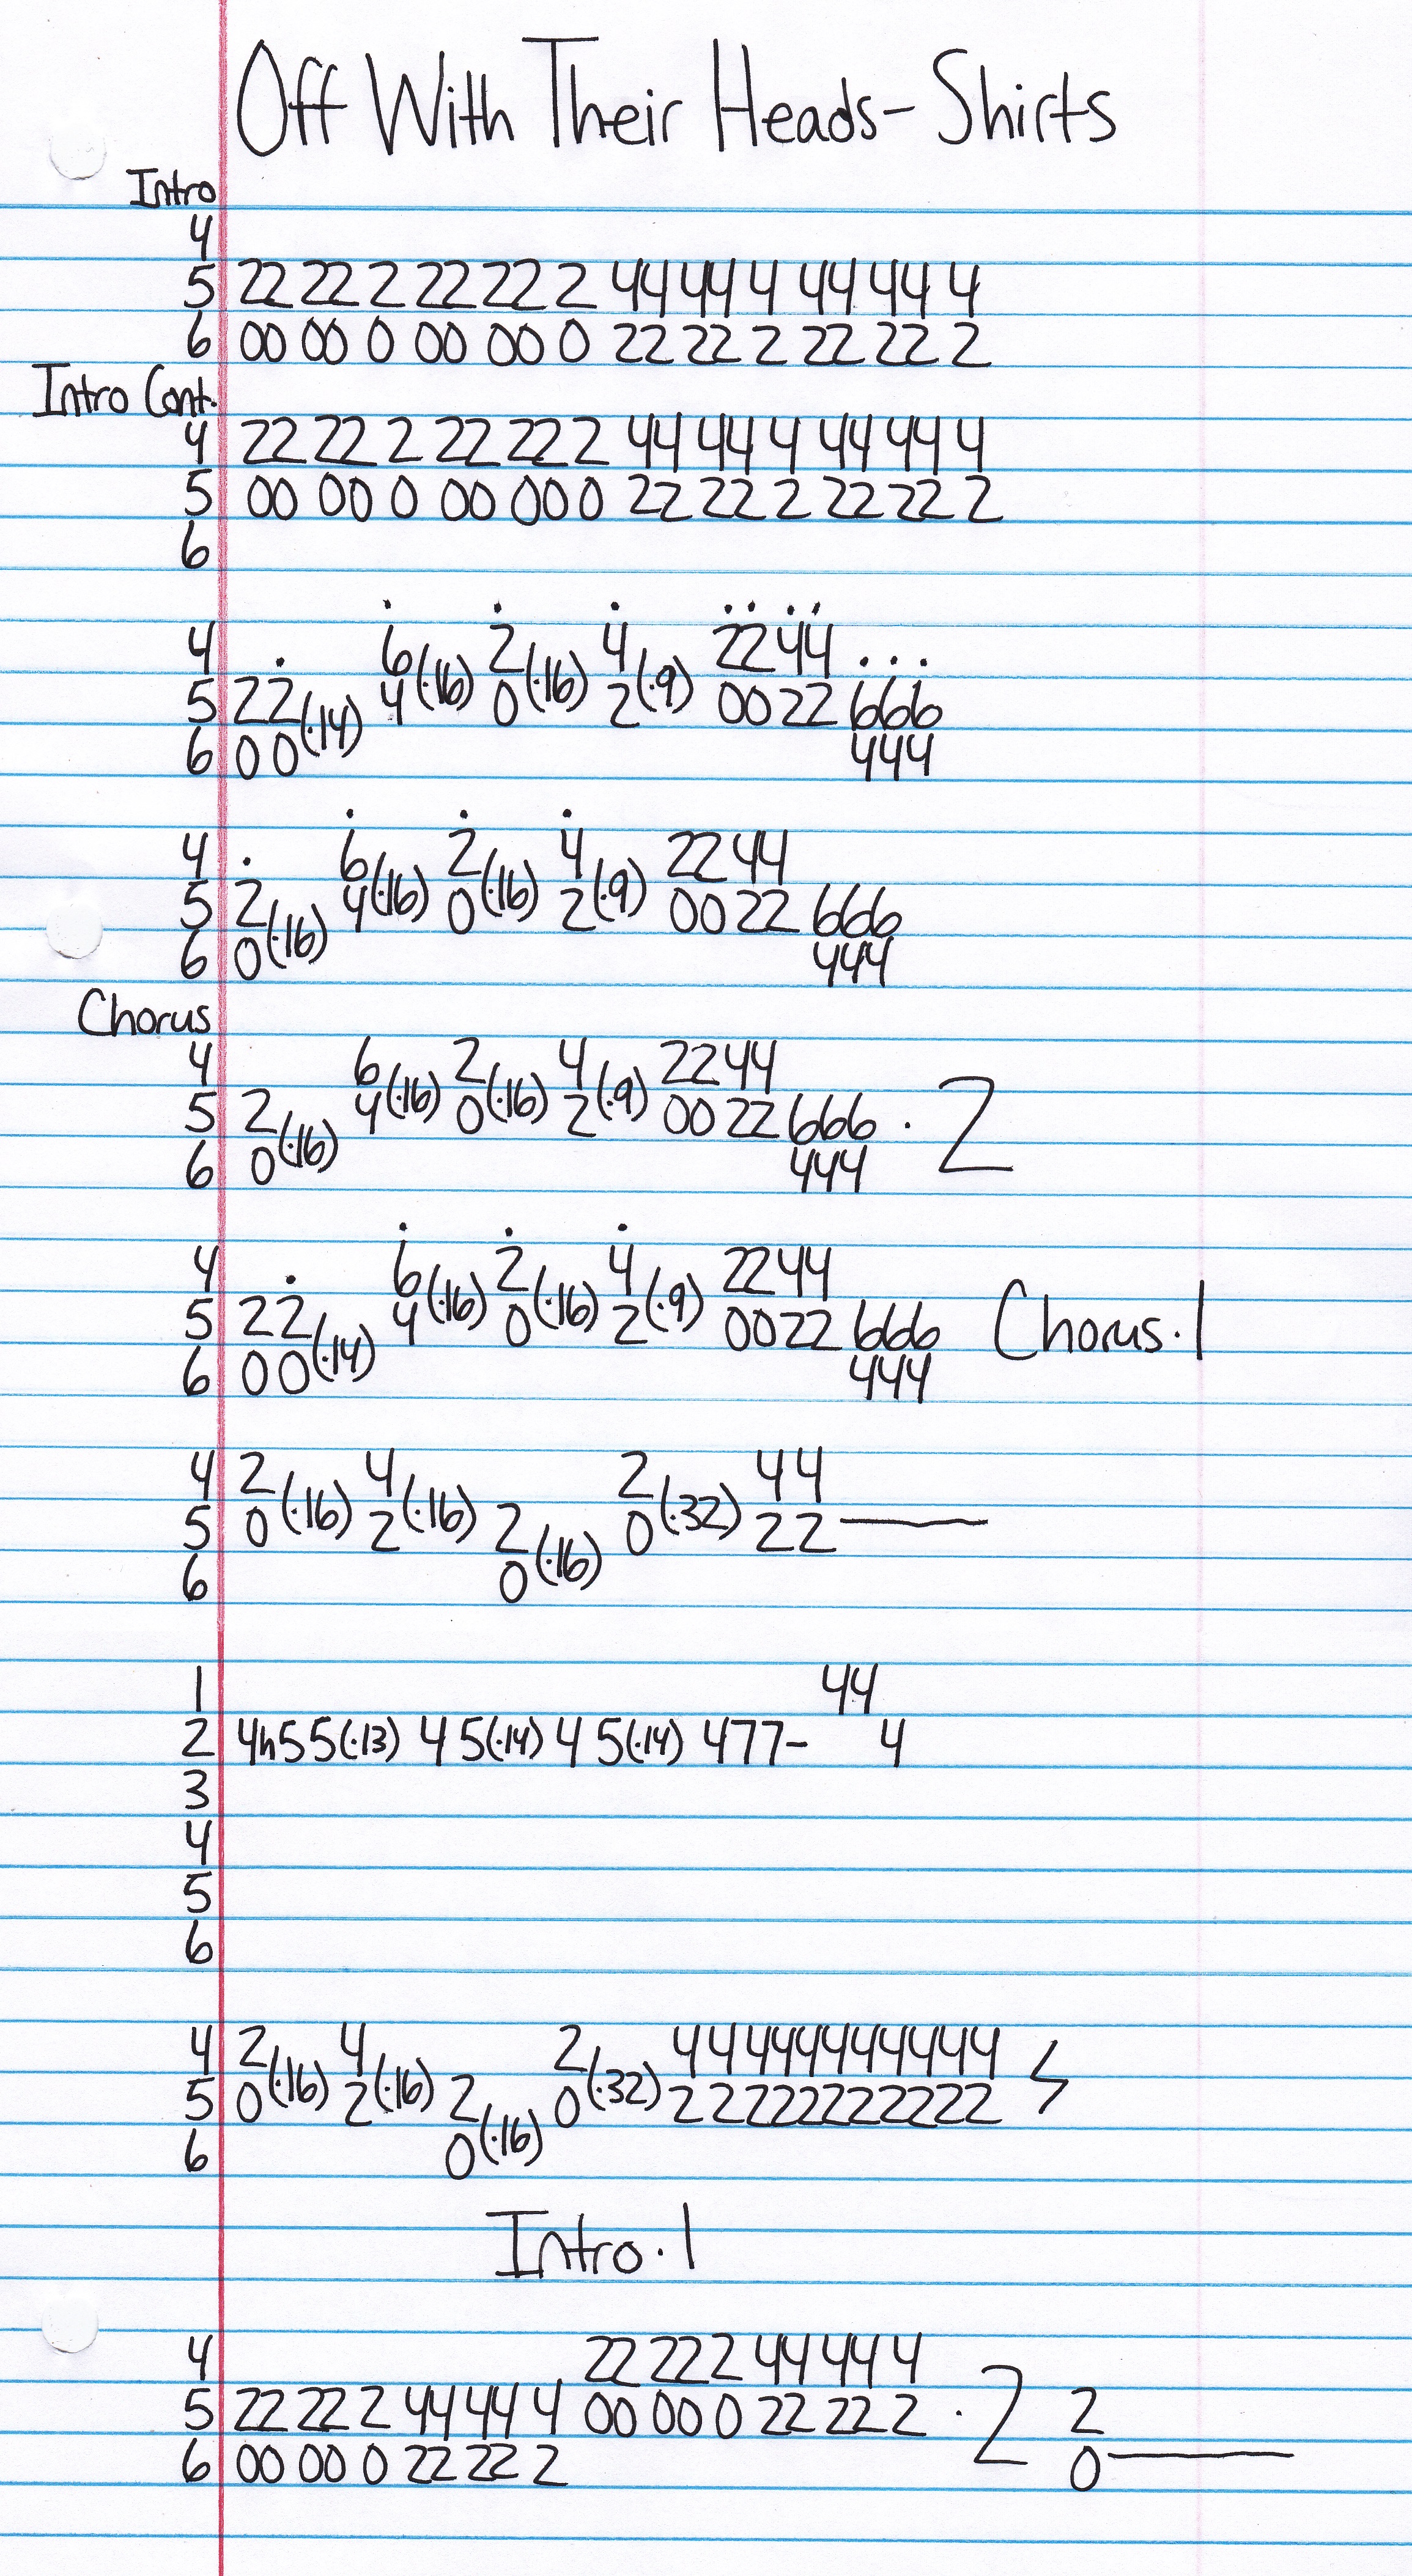 Off With Their Heads- Shirts
Intro
4
5 22 22 2 22 22 2 44 44 4 44 44 4
6 00 00 0 00 00 0 22 22 2 22 22 2
Intro Cont.
4 22 22 2 22 22 2 44 44 4 44 44 4
5 00 00 0 00 00 0 22 22 2 22 22 2
6
4 6 2 4 2244 ...
5 22(·14) 4(·16) 0(·16) 2(·9) 0022 666
6 00 444
4 6 2 4 2244
5 2 4(·16) 0(·16) 2(·9) 0022 666
6 0(·16) 444
Chorus
4 6 2 4 2244
5 2 4(·16) 0(·16) 2(·9) 0022 666 · 2
6 0(·16) 444
4 6 2 4 2244
5 22 4(·16) 0(·16) 2(·9) 0022 666 Chorus·1
6 00(·14) 444
4 2 4 2 44
5 0(·16) 2(·16) 2 0(·32) 22
6 0(·16)
1 44
2 4h55(·13) 45(·14) 45(·14) 477- 4
3
4
5
6
4 2 4 2 44444444444
5 0(·16) 2(·16) 2 0(·32) 22222222222
6 0(·16)
Intro·1
4 22 22 2 44 44 4
5 22 22 2 44 44 4 00 00 0 22 22 2 · 2 2
6 00 00 0 22 22 2 0